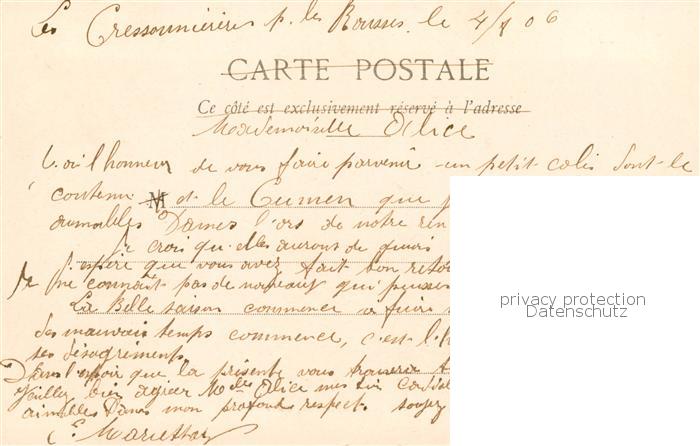 Les Cressonnières p. les Rousses. le 4/8 06
CARTE POSTALE
Ce côté est exclusivement réservé à l'adresse
Mademoiselle Alice
l'honneur de vous faire parvenir un petit colis dont le
contenu M est le Cumen que
aimables Dames l'ors de notre
je crois qu'elles aurons de
J'espère que vous avez fait bon
Je ne connait pas de nouveaux qui puisse
La Belle saison commence a fuire
des mauvais temps commence, c'est
ses désagréments.
Dans l'espoir que la présente vous trouvera
Veuillez bien agréer Melle Alice mes
aimables Dames mon profonds respect.
privacy protection
Datenschutz